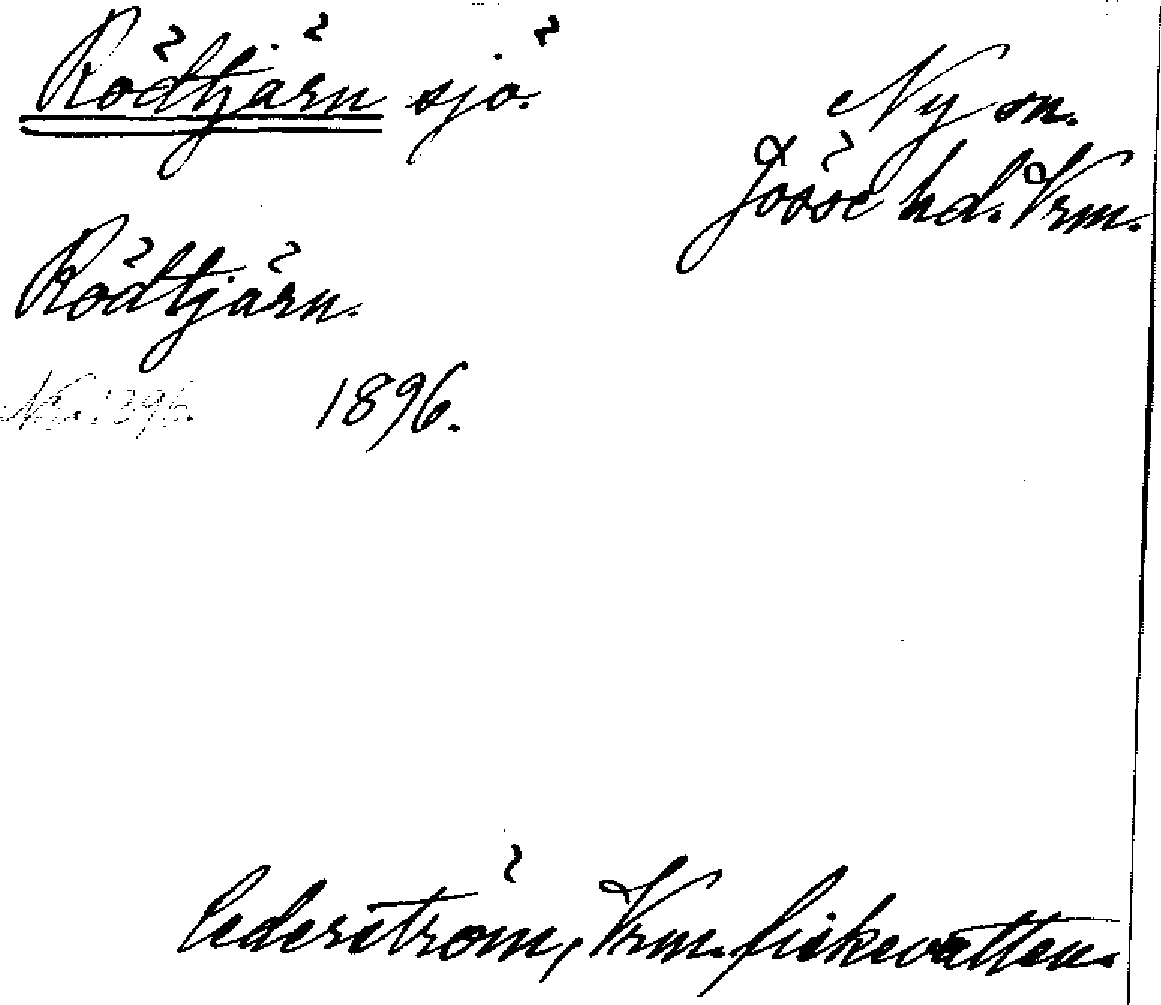 Rödtjärn sjö.
Ny sn.
Jösse hd. Vrm.
Rödtjärn.
1896.
Cederström, Vrm. fiskevatten.